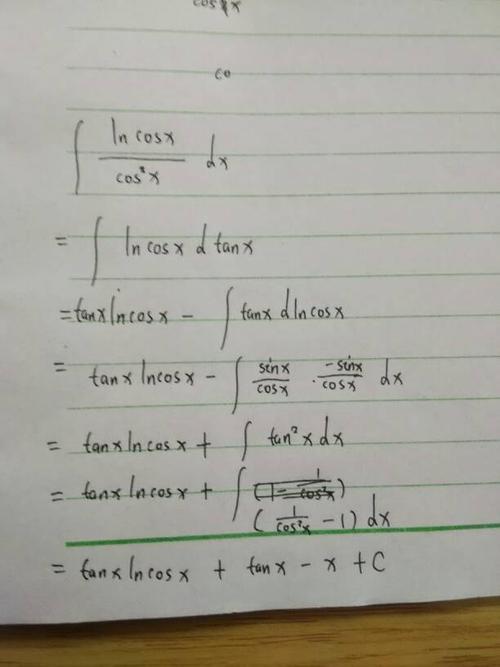 cos x
co
∫ ln cosx / cos²x dx
= ∫ ln cosx d tanx
= tanx ln cosx - ∫ tanx d ln cosx
= tanx ln cosx - ∫ sinx/cosx · -sinx/cosx dx
= tanx ln cosx + ∫ tan²x dx
= tanx ln cosx + ∫ (1 - 1/cos²x)
(1/cos²x - 1) dx
= tanx ln cosx + tanx - x + C